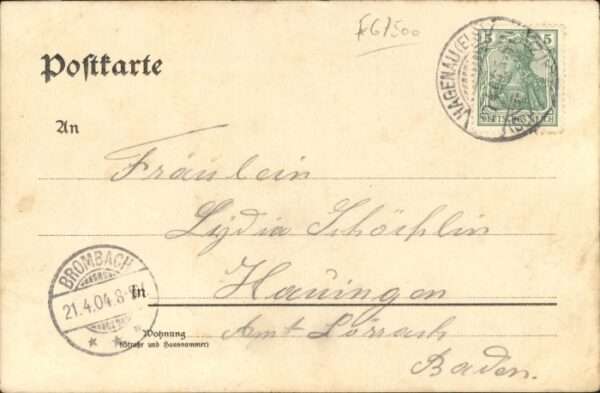 F67500
5 5
DEUTSCHES REICH
HAGENAU (ELS.)
Postkarte
An
Fräulein
Lydia Schöpflin
BROMBACH
21.4.04.8-
Hauingen
in
Amt Lörrach
Wohnung
(Straße und Hausnummer)
Baden.